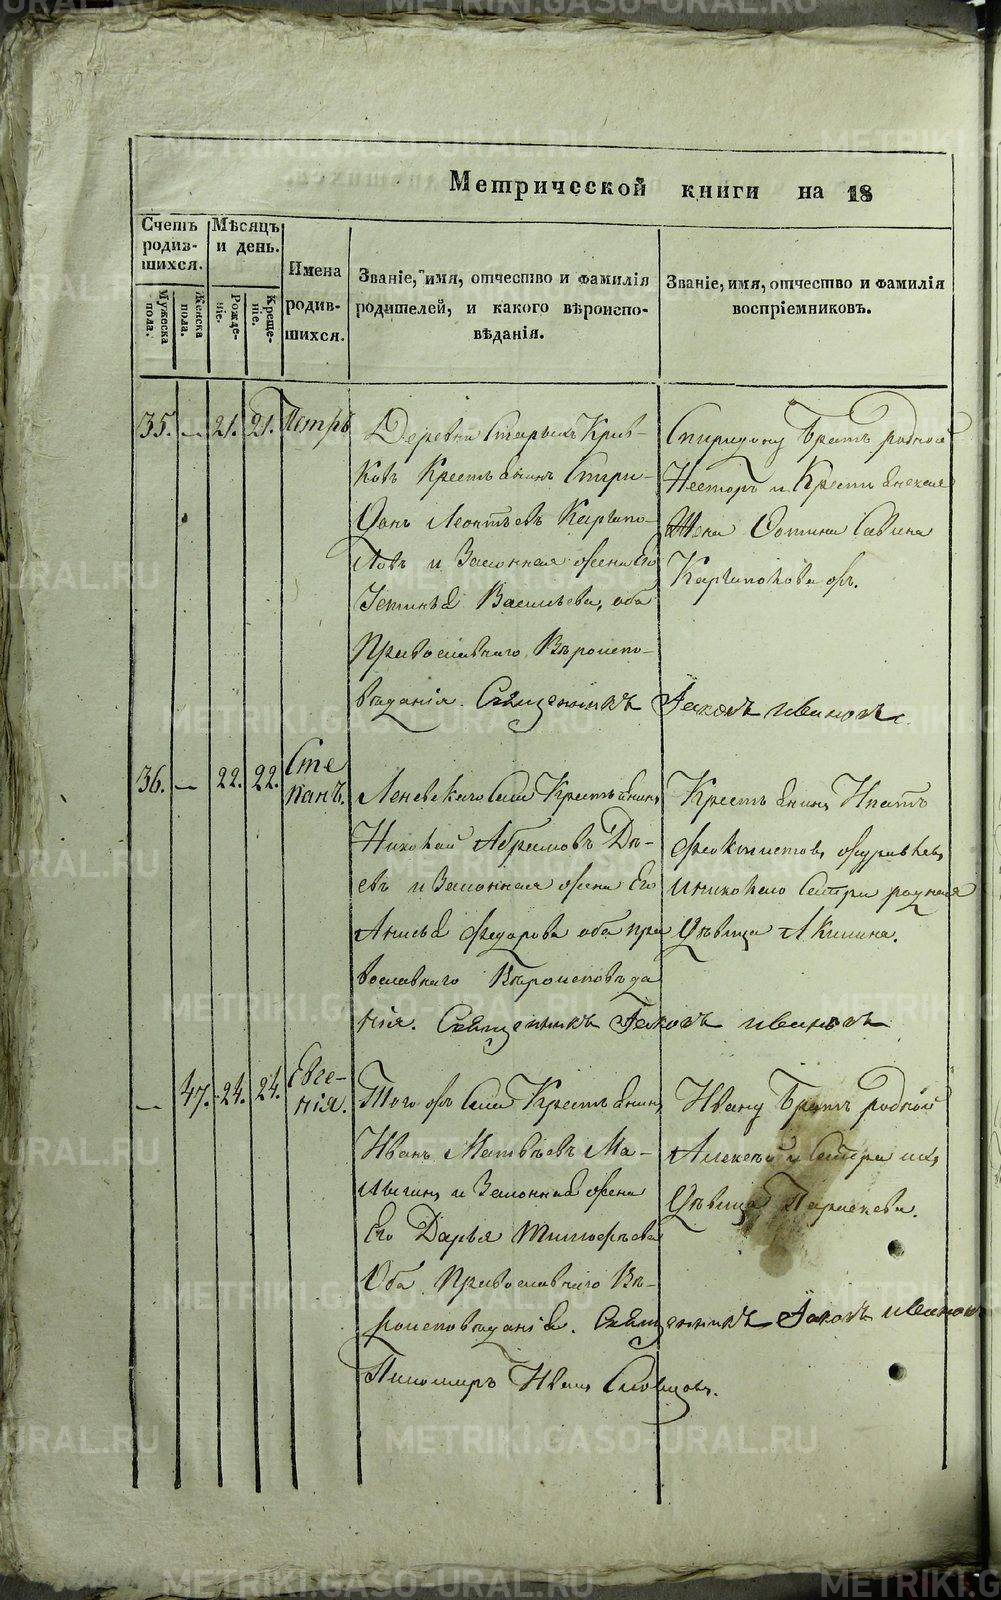 Метрической книги на 18
Счетъ родив-шихся.
Мужеска пола.
Женска пола.
Мѣсяцъ и день.
Рожде-ніе.
Креще-ніе.
Имена родив-шихся.
Званіе, имя, отчество и фамилія
родителей, и какого вѣроиспо-
вѣданія.
Званіе, имя, отчество и фамилія
воспріемниковъ.
35. — 21. 21. Петръ
Деревни Старыхъ
ковъ Крестьянинъ Спири-
донъ Леонтьевъ Каргапо-
ловъ и Законная жена Его
Устинья Васильева, оба
Православнаго Вѣроиспо-
вѣданія. Священникъ Іаковъ Ивановъ.
Спиридону братъ родной
Несторъ и Крестьянская
Жена Сави
Каргаполова жъ.
36. — 22. 22. Сте
панъ.
Леневскаго Села Крестьянинъ
Николай Абрамовъ
евъ и Законная жена Его
Анисья Федорова оба пра
вославнаго Вѣроисповѣда
нія. Священникъ Іаковъ Ивановъ
Крестьянинъ Ипатъ
Феоктистовъ Журавлевъ
и Николаю Сестра родная
дѣвица Акилина.
— 47. 24. 24. Евге-
нія.
Того жъ Села Крестьянинъ
Иванъ Матвѣевъ Ма-
лыгинъ и Законная жена
Его Дарья Тимофѣева
Оба Православнаго Вѣ-
роисповѣданія. Священникъ Іаковъ Ивановъ
Пономарь Иванъ Словцовъ.
Ивану братъ родной
Алексѣй и Сестра ихъ
дѣвица Параскева.
METRIKI.GASO-URAL.RU